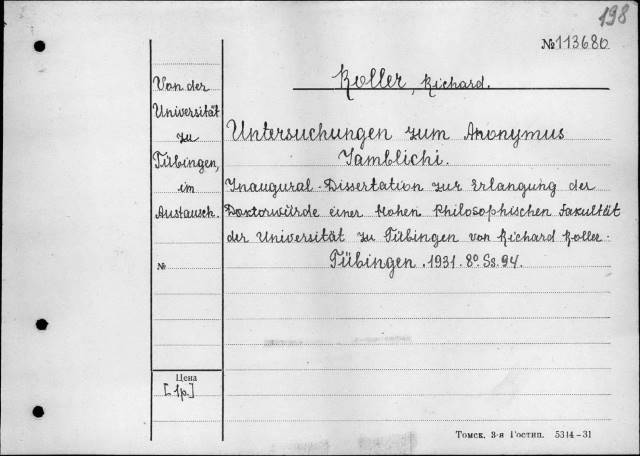 198
№113680
Koller, Richard.
Von der
Universität
zu
Tübingen,
im
Austausch.
Untersuchungen zum Anonymus
Iamblichi.
Inaugural-Dissertation zur Erlangung der
Doktorwürde einer Hohen Philosophischen Fakultät
der Universität zu Tübingen von Richard Koller.
Tübingen. 1931. 8º. Ss. 94.
№
Цена
[1р.]
Томск, 3-я Гостип. 5314-31